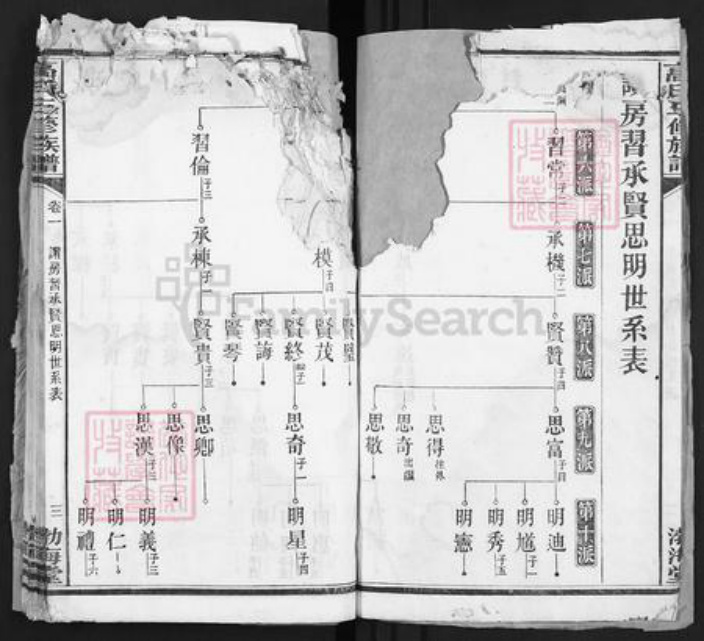 高氏三修族譜
房習承賢思明世系表
第六派
第七派
第八派
第九派
第十派
習常
承機 子二
賢贊 子四
思富 子四
思得 往外
思奇 出繼
思敬
明迪
明尲 子一
明秀 子五
明憲
模 子四
賢璧
賢茂
賢終
賢誨
賢琴
思奇 子一
明星 子四
習倫 子三
承棟 子一
賢貴 子三
思卿
思像
思漢 子三
明義 子三
明仁
明禮 子六
高氏三修族譜
卷一
謂房習承賢思明世系表
三
渤海堂
FamilySearch